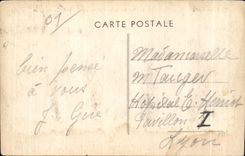 01
CARTE POSTALE
bien pense
à vous
J. Grie
Madamoiselle
M Tauger
Hôpital E. Herriot
Pavillon I
Lyon